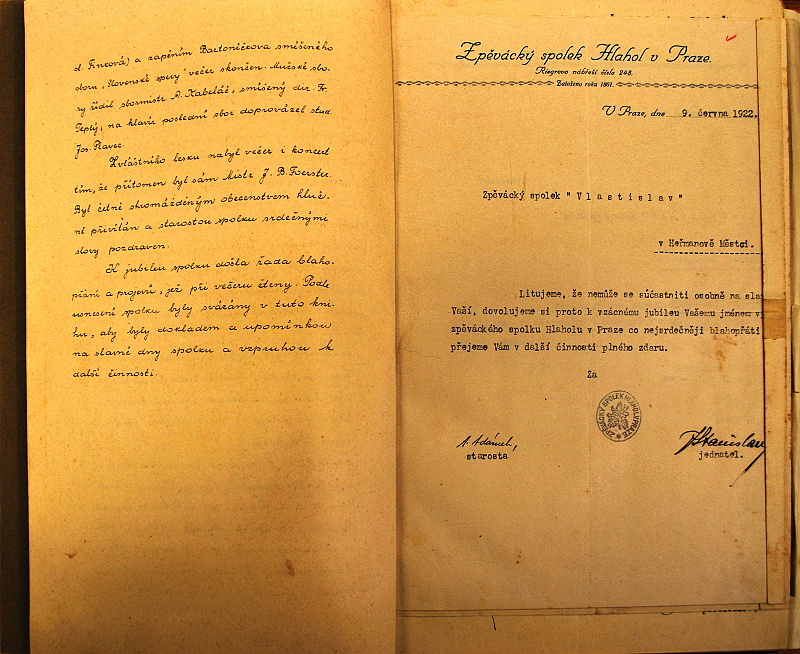 sl. Finková) a zapěním Bartoníčkova smíšeného
sboru „Slovenské spevy" večer skončen. Mužské sbo-
ry řídil sbormistr A. Kabeláč, smíšený dir. Fr.
Teplý; na klavír poslední sbor doprovázel stud.
Jos. Plavec.
Zvláštního lesku nabyl večer i koncert
tím, že přítomen byl sám Mistr J. B. Foerster.
Byl četně shromážděným obecenstvem hluč-
ně přivítán a starostou spolku srdečnými
slovy pozdraven.
K jubileu spolku došla řada blaho-
přání a projevů, jež při večeru čteny. Podle
usnesení spolku byly svázány v tuto kni-
hu, aby byly dokladem a upomínkou
na slavné dny spolku a vzpruhou k
další činnosti.
Zpěvácký spolek Hlahol v Praze.
Riegrovo nábřeží číslo 248.
Založeno roku 1861.
V Praze, dne 9. června 1922.
Zpěvácký spolek "Vlastislav"
v Heřmanově Městci.
Litujeme, že nemůže se súčastniti osobně na sla
Vaší, dovolujeme si proto k vzácnému jubileu Vašemu jménem
zpěváckého spolku Hlaholu v Praze co nejsrdečněji blahopřáti
přejeme Vám v další činnosti plného zdaru.
Za
ZPĚVÁCKÝ SPOLEK HLAHOL V PRAZE
A. Adámek,
starosta
Stanislav
jednatel.